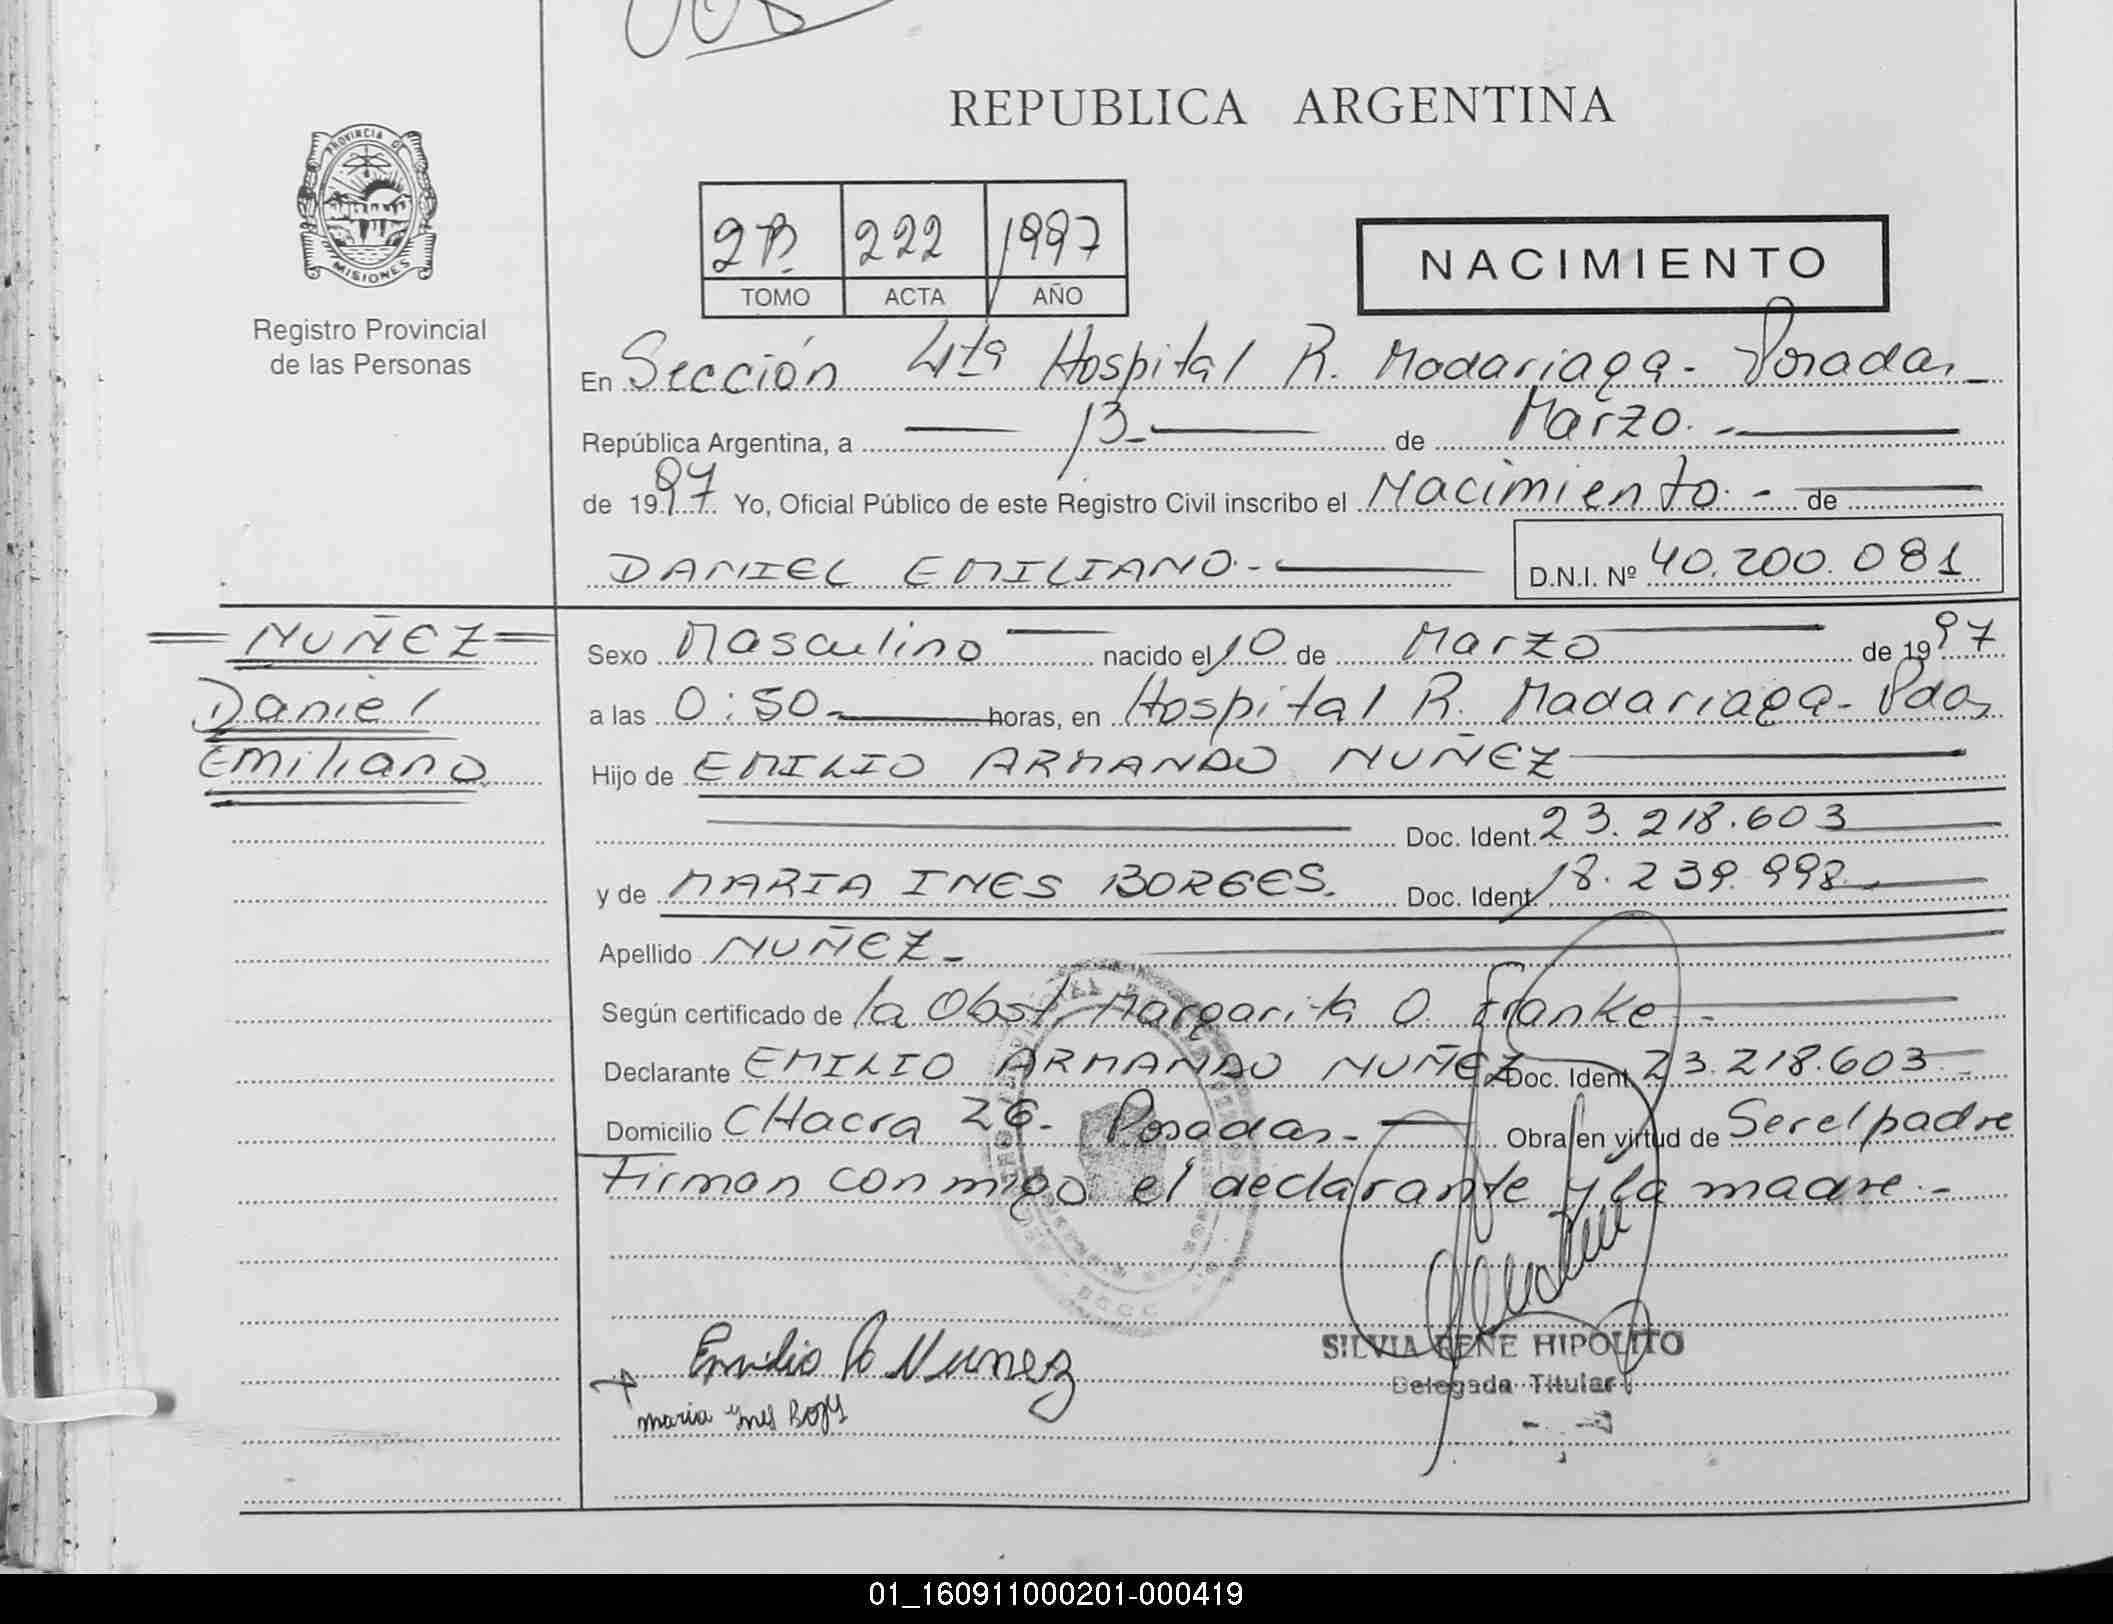 REPUBLICA ARGENTINA
PROVINCIA D
MISIONES
Registro Provincial
de las Personas
2B. 222 1997
TOMO ACTA AÑO
NACIMIENTO
En Sección 4ta Hospital R. Madariaga - Posadas
República Argentina, a 13 de Marzo.
de 1997 Yo, Oficial Público de este Registro Civil inscribo el Nacimiento. - de
DANIEL EMILIANO. -
D.N.I. Nº 40.200.081
NUÑEZ
Daniel
Emiliano
Sexo Masculino nacido el 10 de Marzo de 1997
a las 0:50 horas, en Hospital R. Madariaga - Pdas
Hijo de EMILIO ARMANDO NUÑEZ
Doc. Ident. 23.218.603
y de MARIA INES BORGES. Doc. Ident. 18.239.998
Apellido NUÑEZ -
Según certificado de la Obst. Margarita O. Franke -
Declarante EMILIO ARMANDO NUÑEZ Doc. Ident. 23.218.603
Domicilio CHacra 26 - Posadas - Obra en virtud de Ser el padre
Firman conmigo el declarante y la madre. -
Emilio A Nunez
maria ynes
SILVIA RENE HIPOLITO
Delegada Titular
01_160911000201-000419